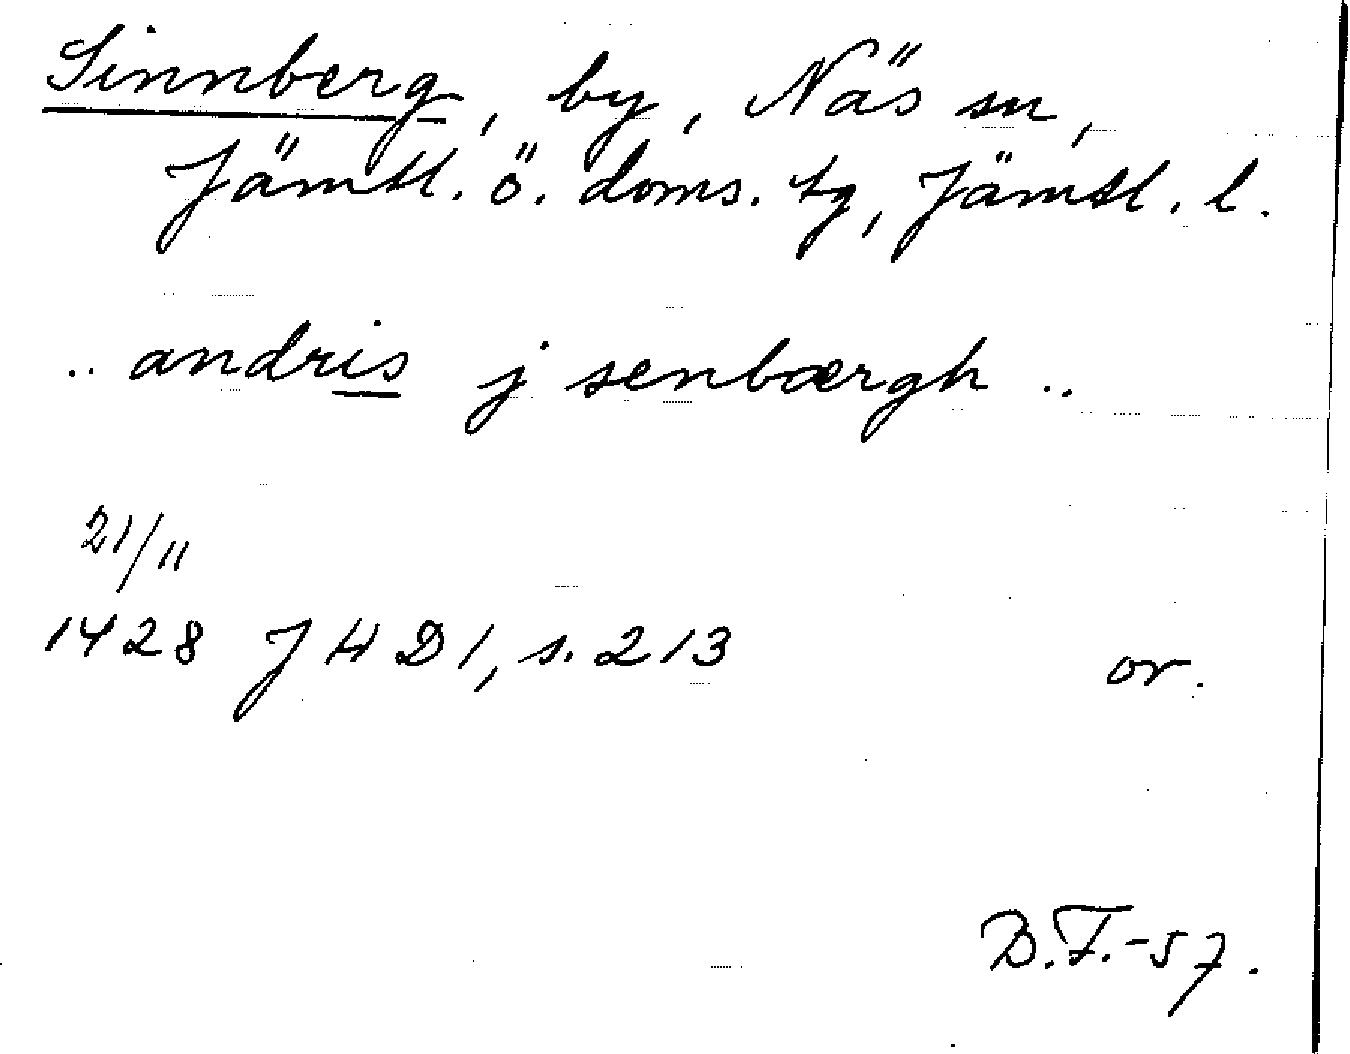 Sinnberg, by, Näs sn,
Jämtl. ö. doms. tg, Jämtl. l.
.. andris j senbærgh ..
21/11
1428 J H D 1, s. 213 or.
B.F.-57.